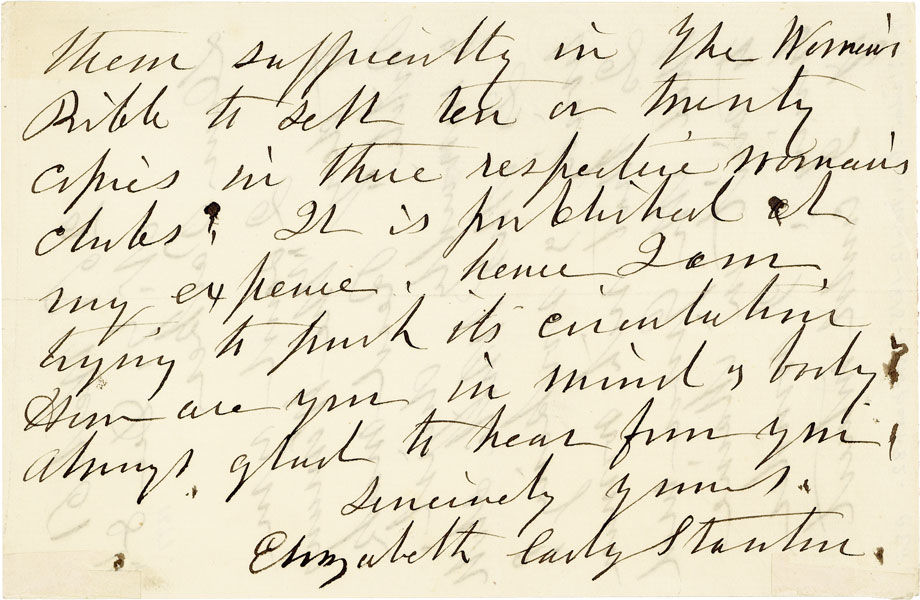 them sufficiently in The Woman's
Bible to sell ten or twenty
copies in their respective woman's
clubs; It is published at
my expense, hence I am
trying to push its circulation
How are you in mind & body?
Always glad to hear from you,
Sincerely yours.
Elizabeth Cady Stanton.